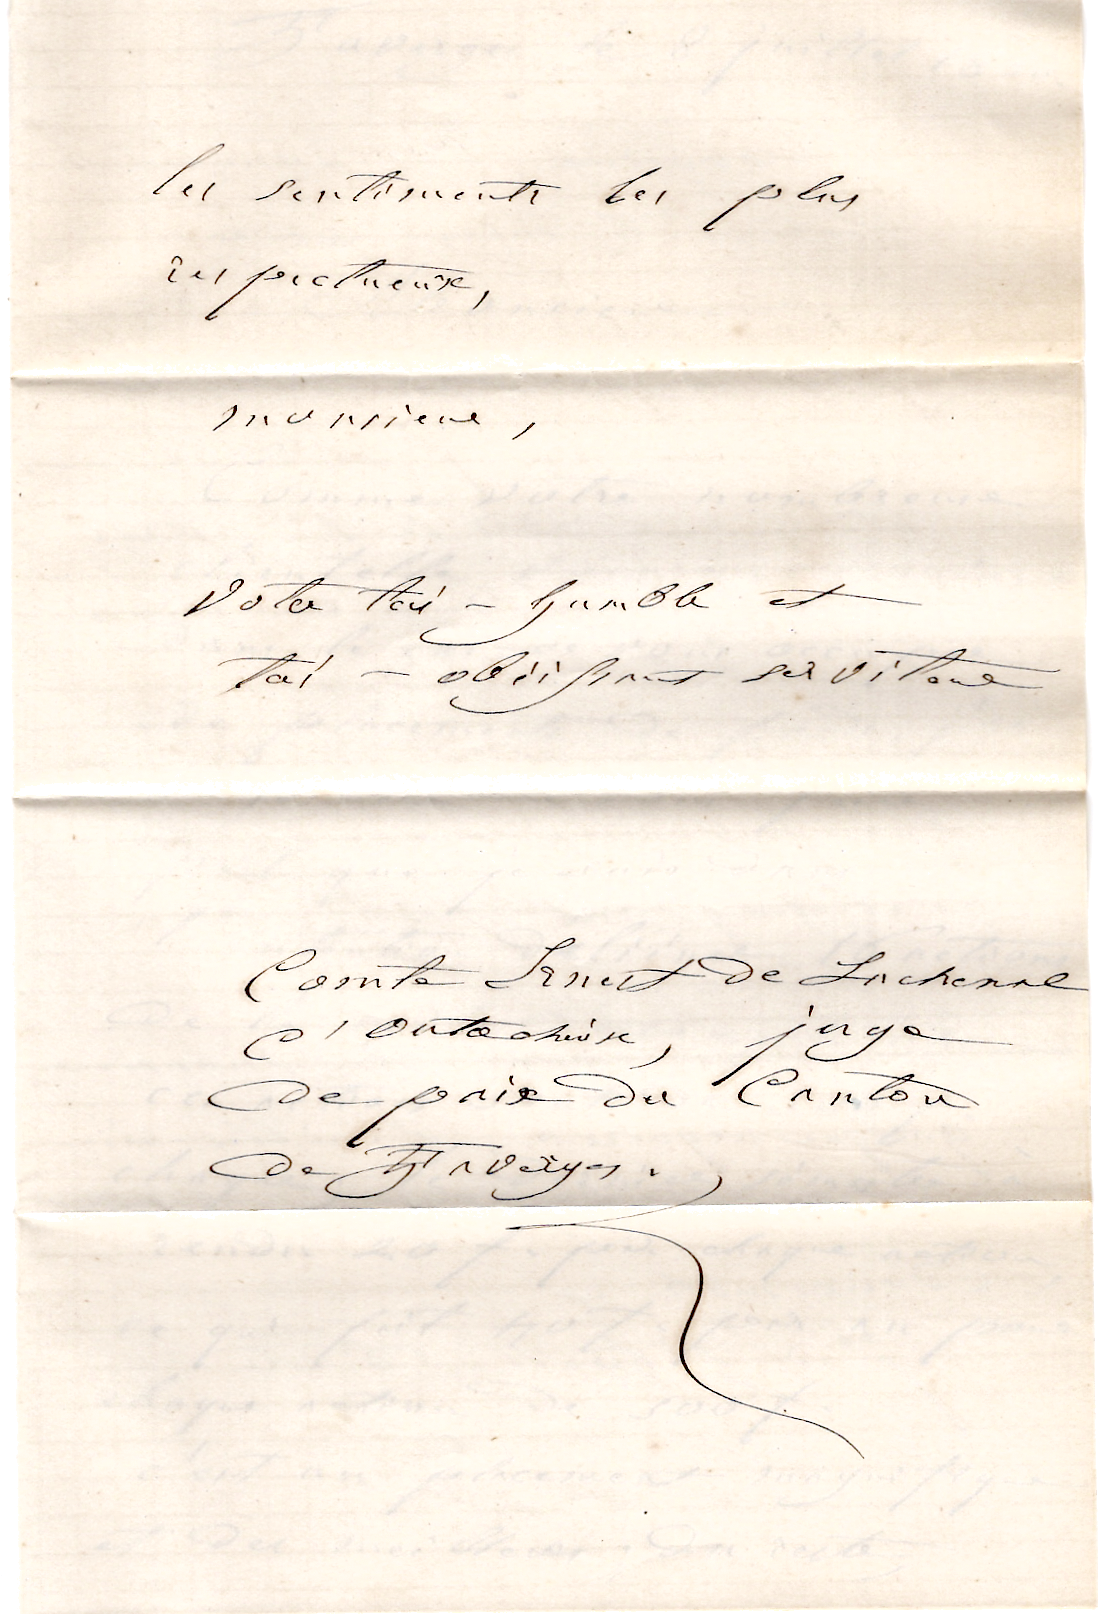 les sentiments les plus
respectueux,
Monsieur,
Votre très-humble et
très-obéissant serviteur
Comte Ernest de Lachenal
d'Outrechaix, juge
de paix du Canton
de Faverges.